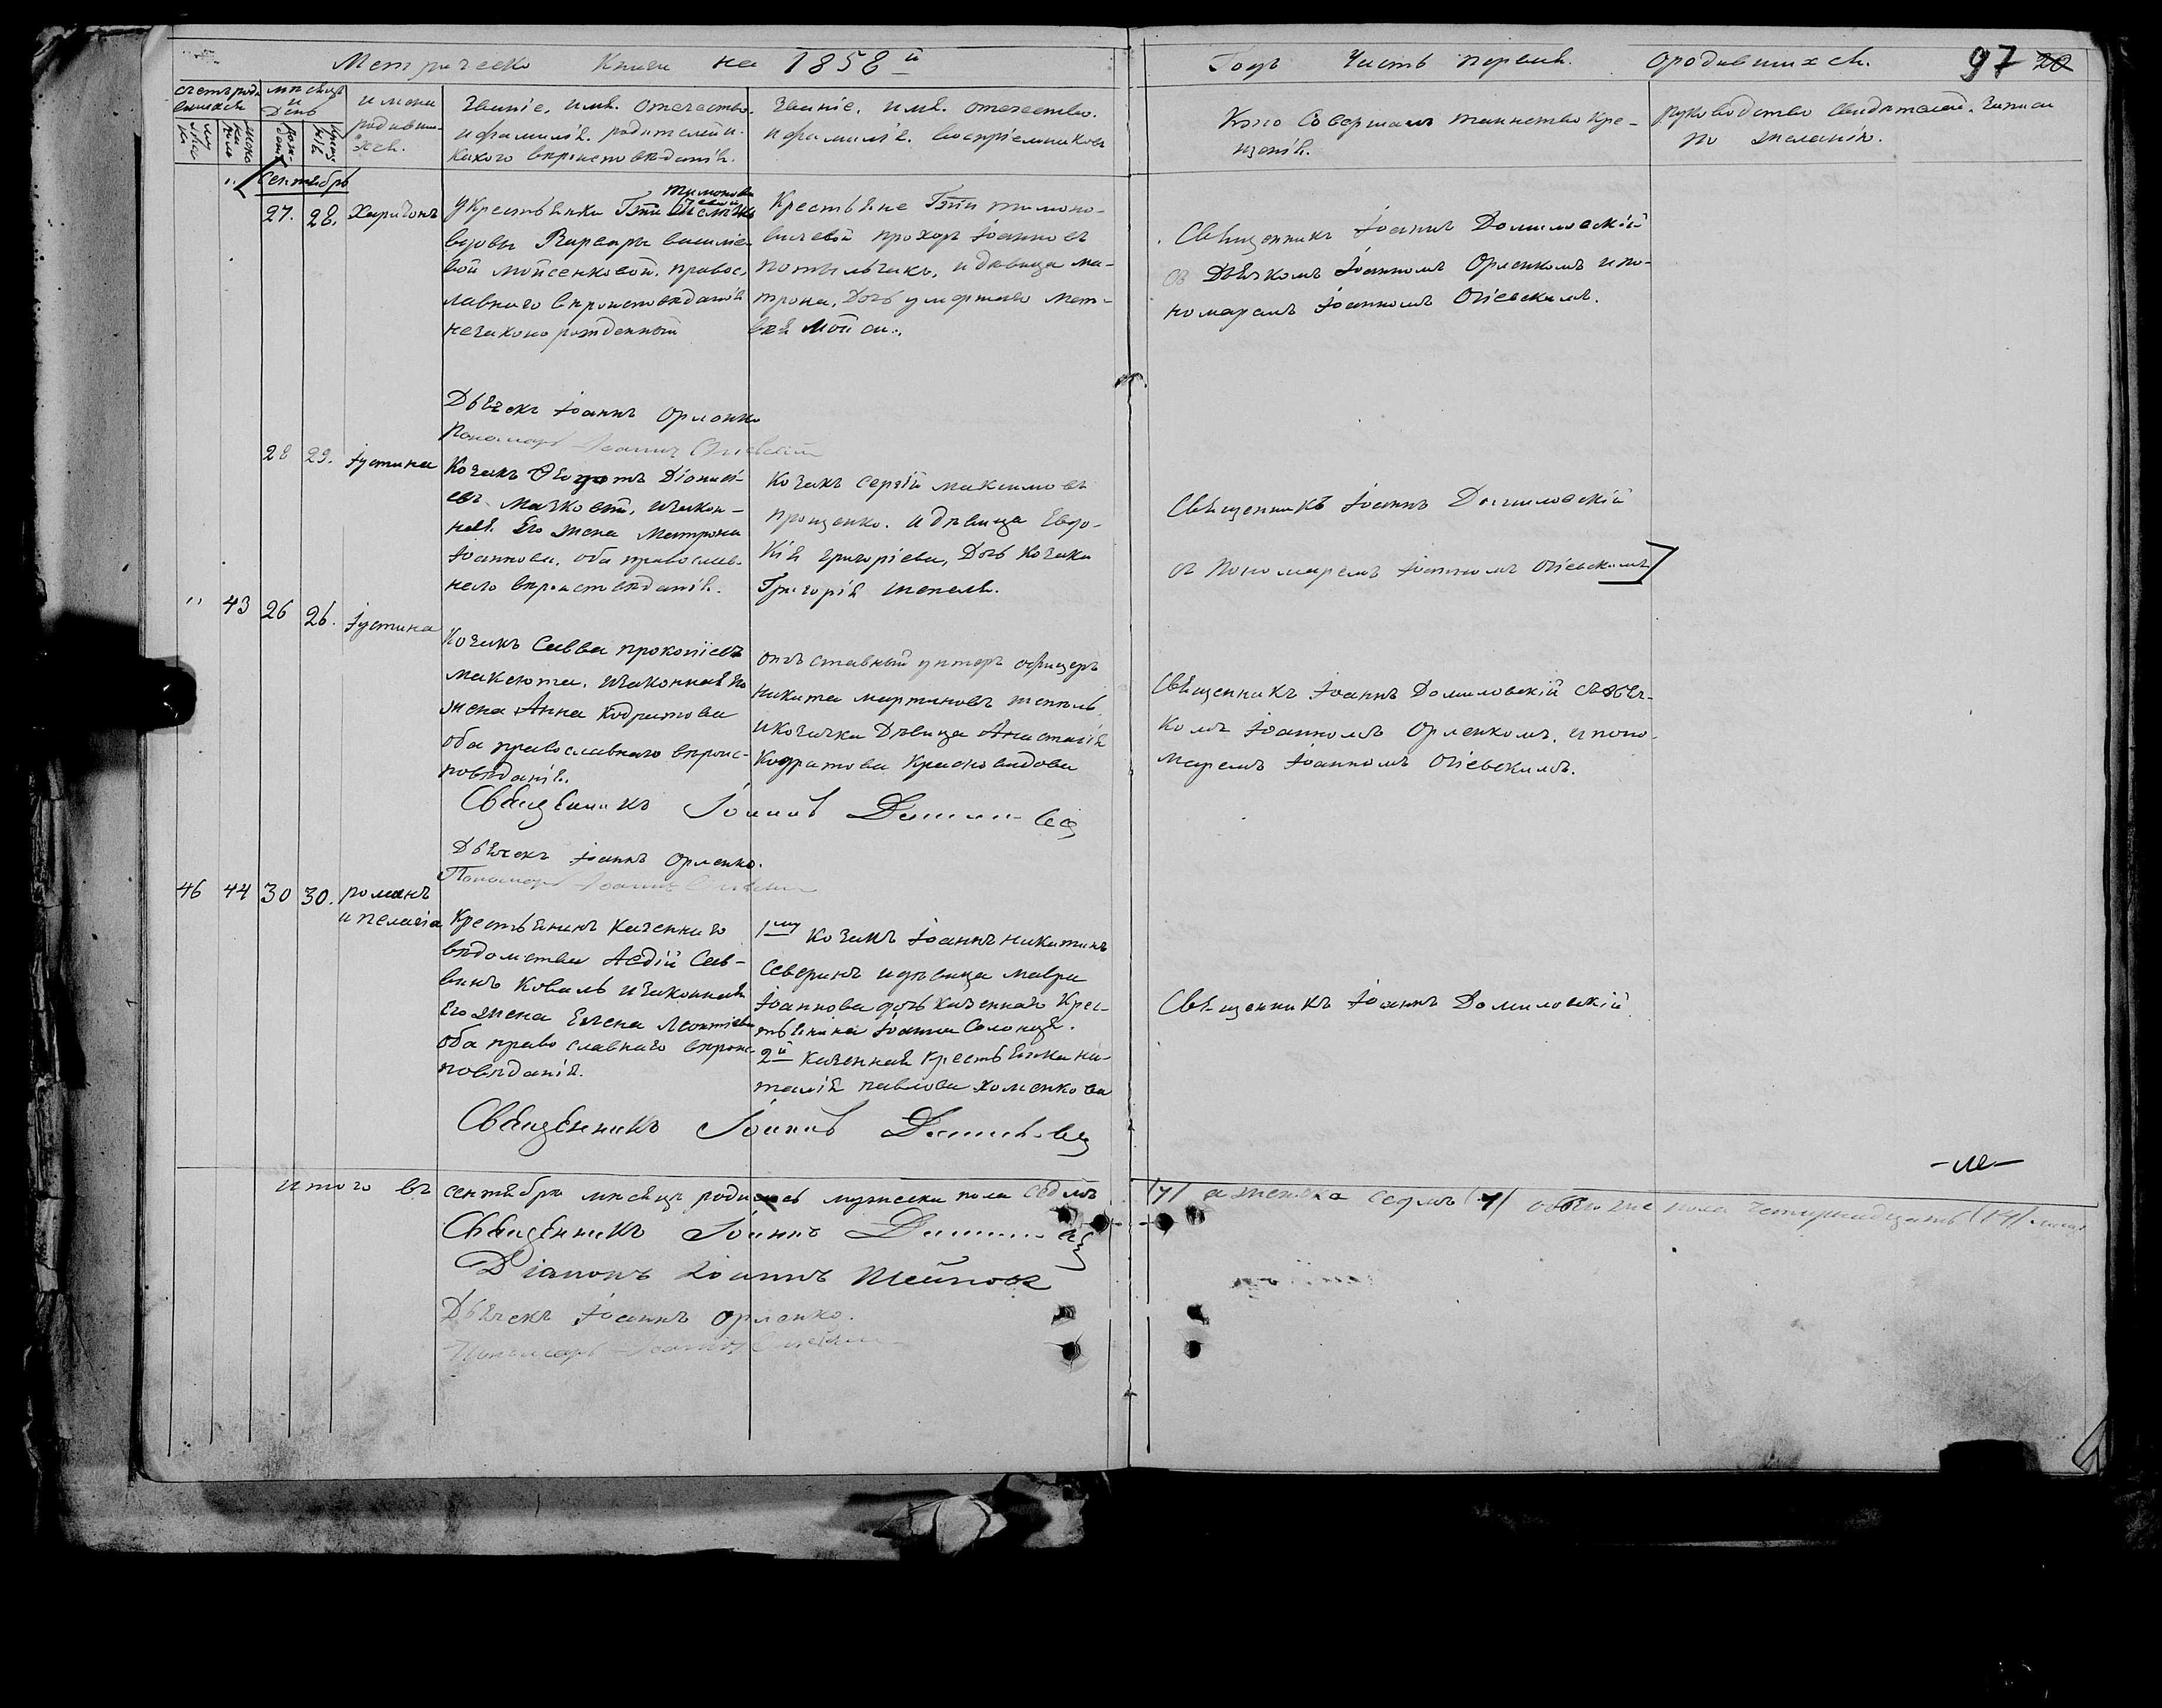 Метрической Книги на 1858й
Годъ Часть первая. О родившихся. 97 20
счетъ роди
вшихся
мѣсяцъ
и
День
имена
родивши-
хся.
Званіе, имя, отечество.
и фамилія родителей и.
какого вѣроисповѣданія.
Званіе, имя, отечество.
и фамилія воспріемниковъ
Кто Совершалъ таинство кре-
щенія.
руководство Свидѣтелей. Записи
по желанію.
Сентябрь
27. 28. Харитонъ
вдовы Варвары василіе
вой мойсенковой, правос,
лавнаго вѣроисповѣданія
незаконо рожденный
Крестьяне Гжи тимоно-
вичевой прохоръ Іоанновъ
потыльчакъ, и дѣвица ма-
трона, Дочь умершаго мат-
вѣя Мойси:,
Священникъ Іоаннъ Домиловскій
съ Дьячкомъ Іоанномъ Орленкомъ и по-
номаремъ Іоанномъ Огіевскимъ.
Дьячекъ Іоаннъ Орленко
Пономарь Іоаннъ Огіевскій
28 29. Іустина
Козакъ Ѳеодотъ Діонисі-
евъ Мачковъ, изакон-
ная Его жена Матрона
Іоаннова, оба православ-
наго вѣроисповѣданія.
Козакъ Сергій максимовъ
прощенко. и дѣвица Евдо-
кія григоріева, Дочь козака
Григорія тепеля.
Священникъ Іоаннъ Домиловскій
съ Пономаремъ Іоанномъ Огіевскимъ
" 43 26 26. Іустина
Козакъ Савва прокопіевъ
максюта, изаконная его
жена Анна Кодратова
оба православнаго вѣроис-
повѣданія.
отъставный унтеръ офицеръ
никита мартиновъ тепель
икозачка Дѣвица Анастасія
Кодратова Красновидова
Священникъ Іоаннъ Домиловскій съ дьяч-
комъ Іоанномъ Орленкомъ, и поно-
маремъ Іоанномъ Огіевскимъ.
Священникъ Іоаннъ
Дьячекъ Іоаннъ Орленко.
Пономарь Іоаннъ
46 44 30 30. романъ
и пелагіа
Крестьянинъ казеннаго
вѣдомства Авдій Сав-
винъ Коваль изаконная
Его жена Елена Леонтіева
оба православнаго вѣроис-
повѣданія.
1му козакъ Іоаннъ никитинъ
Северинъ и дѣвица мавра
Іоаннова дочь казеннаго крес-
тьянина Іоанна Солонця.
2й казенная крестьянка на-
талія павлова хоменкова
Священникъ Іоаннъ Домиловскій
Священникъ Іоаннъ
итого въ сентябрѣ мѣсяцѣ родилось мужеска пола седмъ
/7/ а женска седмъ /7/ обоего же пола четырнадцать /14/
Священникъ Іоаннъ
Діаконъ Іоаннъ
Дьячекъ Іоаннъ Орленко.
Пономарь Іоаннъ